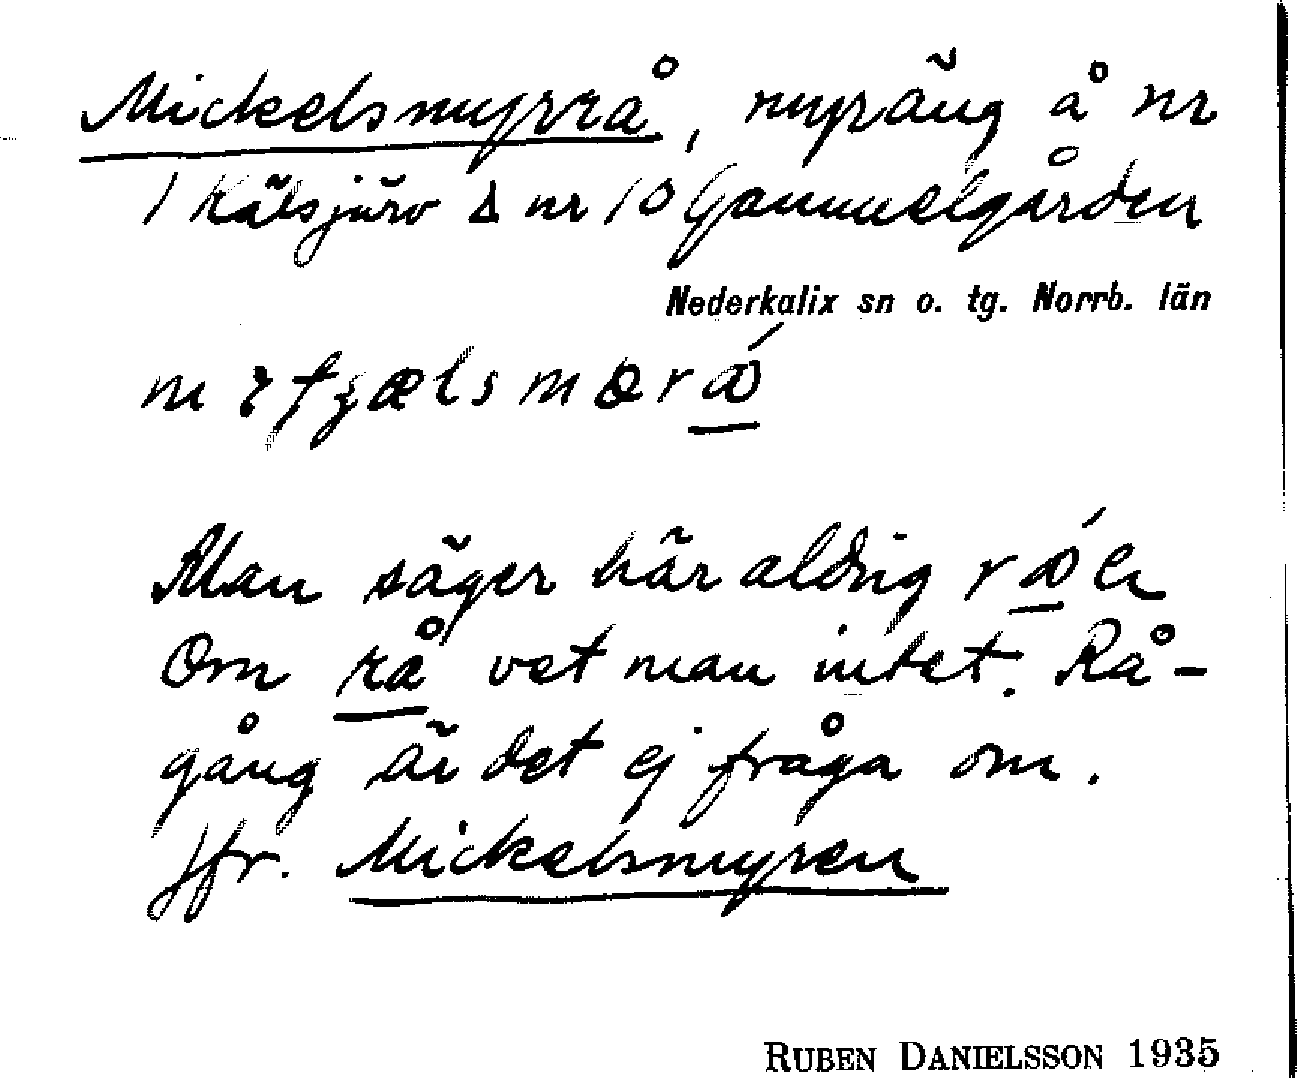 Mickelsmyrrå, myräng å nr
1 Kälsjärv Δ nr 10 Gammelgården
Nederkalix sn o. tg. Norrb. län
Man säger här aldrig
Om rå vet man intet. Rå-
gång är det ej fråga om.
Jfr. Mickelsmyren
RUBEN DANIELSSON 1935